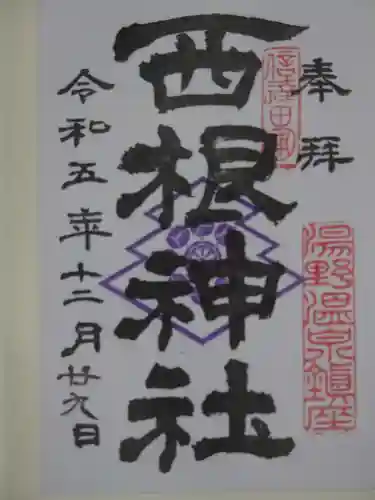 奉拝
西根神社
令和五年十二月廿九日
湯野温泉鎮座